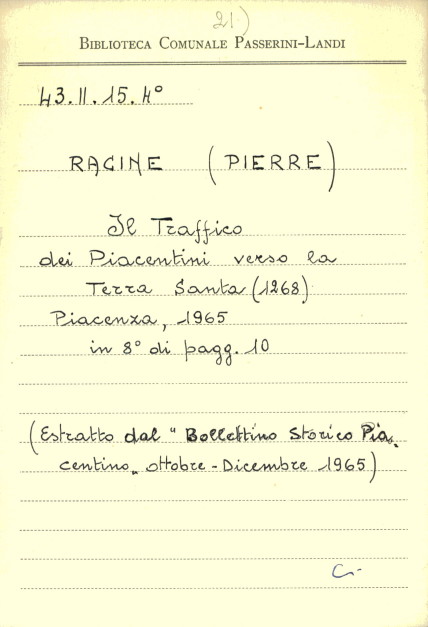 21)
BIBLIOTECA COMUNALE PASSERINI-LANDI
43.II.15.4°
RACINE (PIERRE)
Il Traffico
dei Piacentini verso la
Terra Santa (1268)
Piacenza, 1965
in 8° di pagg. 10
(Estratto dal "Bollettino Storico Pia-
centino" ottobre-Dicembre 1965)